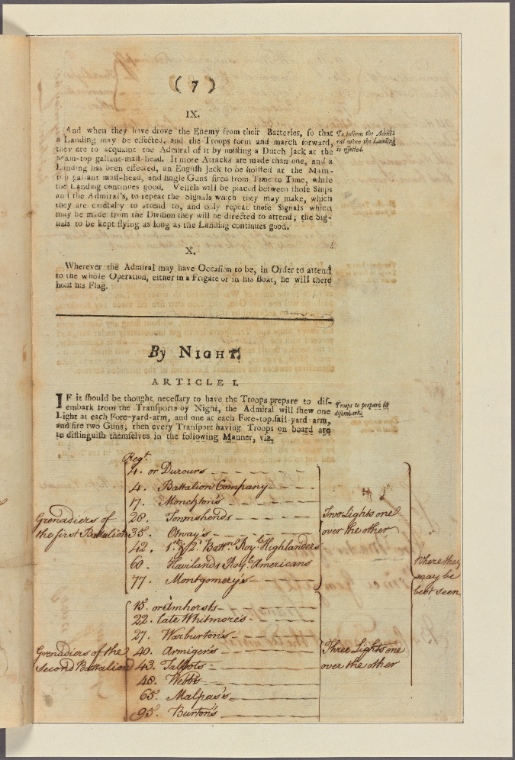 ( 7 )
IX.
And when they have drove the Enemy from their Batteries, so that
a Landing may be effected, and the Troops form and march forward,
they are to acquaint the Admiral of it by hoisting a Dutch Jack at the
Main-top gallant-mast-head. If more Attacks are made than one, and a
Landing has been effected, an English Jack to be hoisted at the Main-
top gallant mast-head, and single Guns fired from Time to Time, while
the Landing continues good. Vessels will be placed between those Ships
and the Admiral's, to repeat the Signals which they may make, which
they are carefully to attend to, and only repeat those Signals which
may be made from the Division they will be directed to attend; the Sig-
nals to be kept flying as long as the Landing continues good.
To inform the Admi-
ral when the Landing
is effected.
X.
Wherever the Admiral may have Occasion to be, in Order to attend
to the whole Operation, either in a Frigate or in his Boat, he will there
hoist his Flag.
By NIGHT.
ARTICLE I.
IF it should be thought necessary to have the Troops prepare to dis-
embark from the Transports by Night, the Admiral will shew one
Light at each Fore-yard-arm, and one at each Fore-top-sail-yard-arm,
and fire two Guns; then every Transport having Troops on board are
to distinguish themselves in the following Manner, viz.
Troops to prepare to
disembark.
Regt.
4. or Duroure's
4. Battalion Company
17. Monckton's
28. Townshends
35. Otway's
42. 1st & 2d. Battns. Royl. Highlanders
60. Havilands Royl. Americans
77. Montgomery's
Grenadiers of
the first Battalion
Two Lights one
over the other
Where they
may be
best seen
15. or Amhersts
22. late Whitmore's
27. Warburton's
40. Armiger's
43. Talbots
48. Webbs
65. Malpas's
95. Burton's
Grenadiers of the
Second Battalion
Three Lights one
over the other